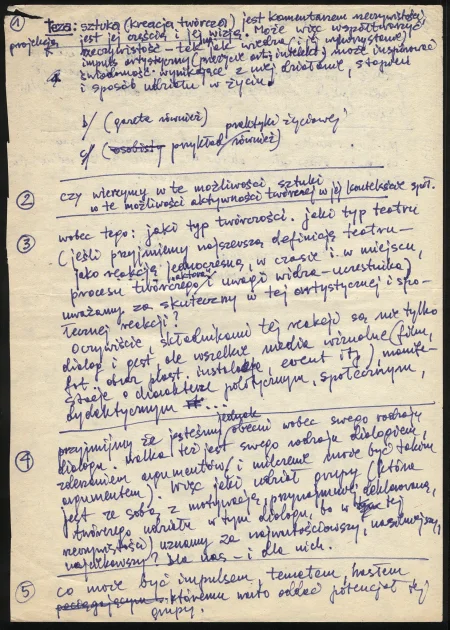 ① Teza: sztuka (kreacja twórcza) jest komentarzem rzeczywistości
projekcją, jest jej częścią i jej wizją. Może więc współtworzyć
rzeczywistość – tak jak wiedza (i jej wykorzystanie)
impuls artystyczny (przeżycie art. i intelekt.) może inspirować
świadomość wynikające z niej działanie, stopień
i sposób udziału w życiu.
b/ (geneza również) praktyki życiowej
c/ (osobisty przykład również)
② czy wierzymy w te możliwości sztuki
w te możliwości aktywności twórczej w jej kontekście społ.
③ wobec tego: jaki typ twórczości. jaki typ teatru
(jeśli przyjmiemy najszerszą definicję teatru –
jako reakcją jednoczesną, w czasie i w miejscu,
procesu twórczego aktora i uwagi widza-uczestnika),
uważamy za skuteczny w tej artystycznej i spo-
łecznej reakcji?
Oczywiście, składnikami tej reakcji są nie tylko
dialog i gest ale wszelkie media wizualne (film,
fot. oraz plast. instalacje, event itp), manife-
stacje o charakterze politycznym, społecznym,
dydaktycznym ...
④ przyjmijmy że jesteśmy jednak obecni wobec swego rodzaju
dialogu. walka też jest swego rodzaju dialogiem,
zderzeniem argumentów (i milczenie może być takim
argumentem). Więc jaki udział grupy (która
jest ze sobą z motywacją, przynajmniej deklarowaną,
twórczego udziału w tym dialogu, bo w tej
rzeczywistości) uznamy za najwartościowszy, najsilniejszy,
najciekawszy? dla nas – i dla nich.
⑤ co może być impulsem, tematem, hasłem
pociągającym któremu warto oddać potencjał tej
grupy.